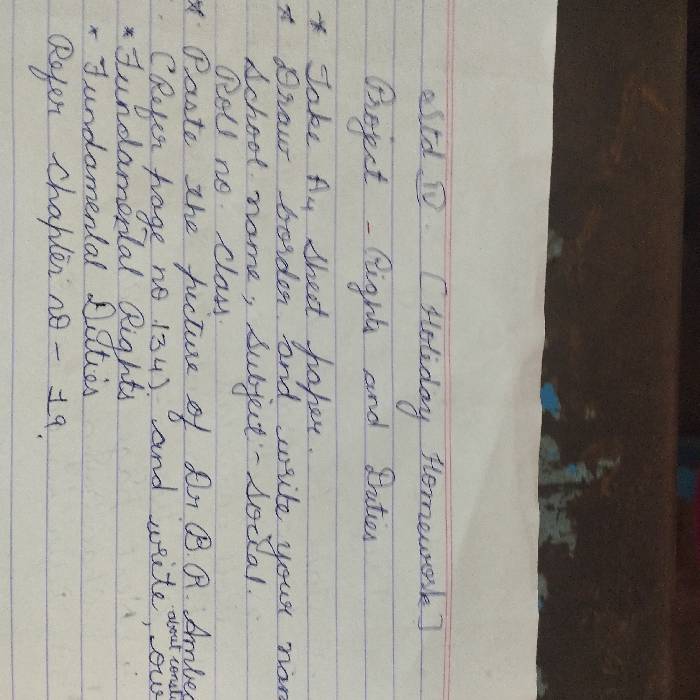 Std IV. [Holiday Homework]
Project - Rights and Duties
* Take A4 sheet paper.
* Draw border and write your nam
School name, Subject:- Social.
Roll no. Class.
* Paste the picture of Dr B.R. Ambed
(Refer page no 134). and write, our
about consti
* Fundamental Rights
* Fundamental Duties
Refer Chapter no - 19.